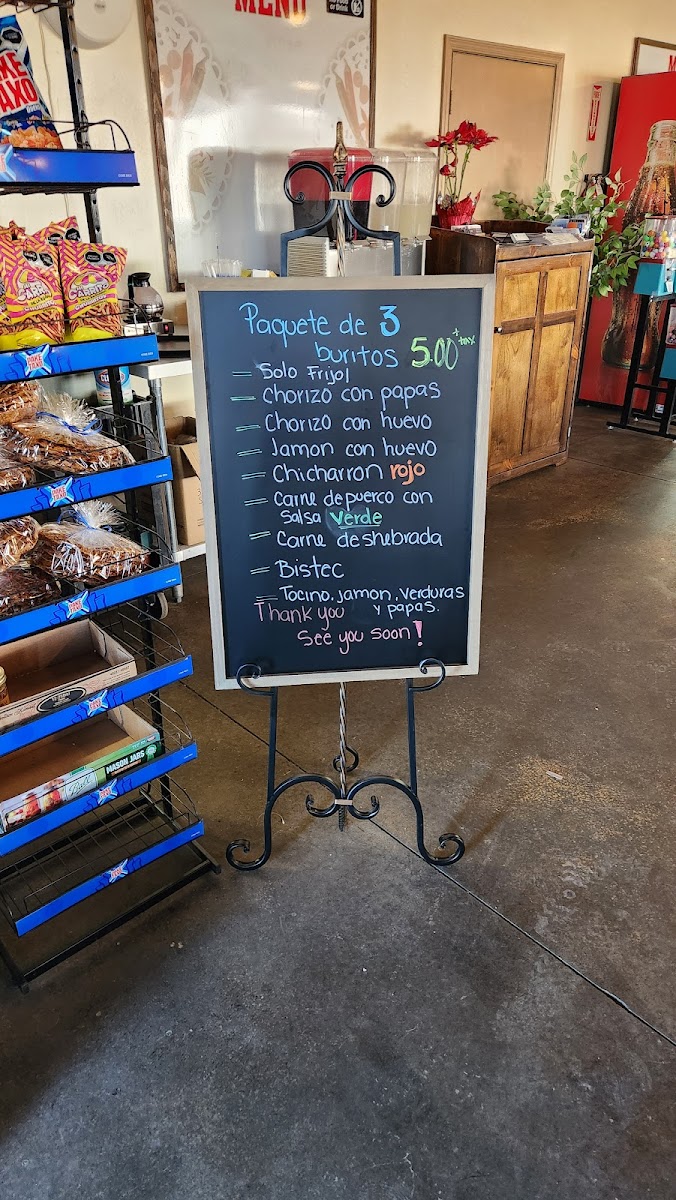 MENU
or Drink
TAKE
TAXO
Paquete de 3
buritos 5.00 + tax
= Solo Frijol
= Chorizo con papas
= Chorizo con huevo
= Jamon con huevo
= Chicharron rojo
= Carne de puerco con
Salsa Verde
= Carne deshebrada
= Bistec
= Tocino, jamon, verduras
y papas.
Thank you
See you soon!
TAKE TAXO
TAKE TAXO
TAKE TAXO
TAKE TAXO
MASON JARS